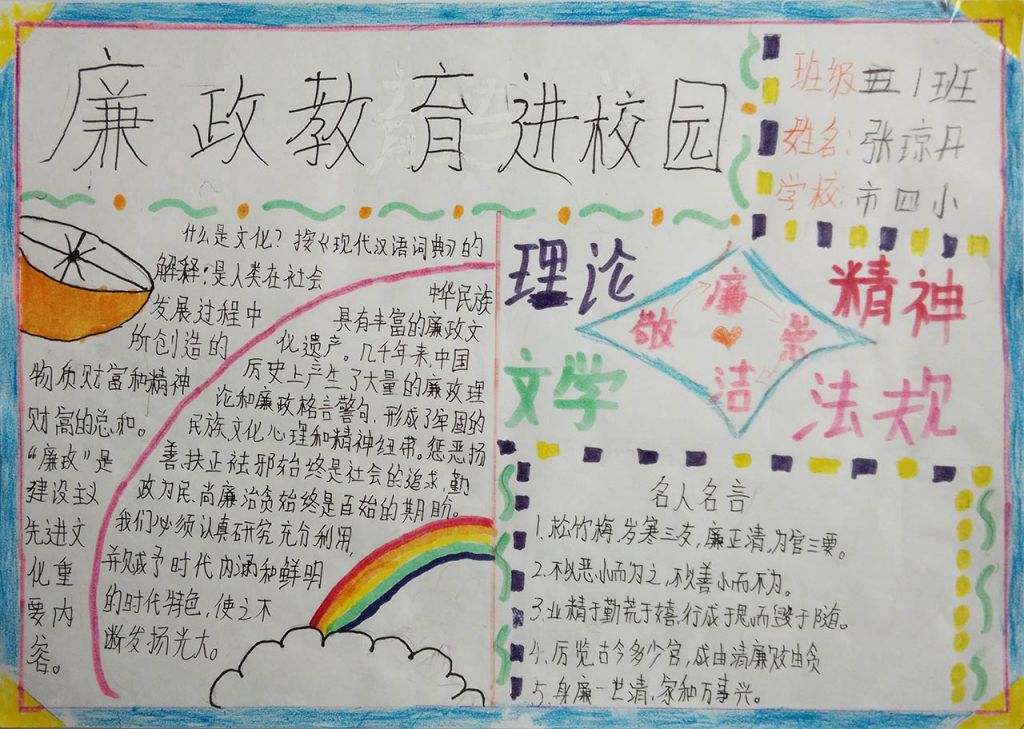 廉政教育进校园
班级 五1班
姓名：张琼丹
学校：市四小
什么是文化？按《现代汉语词典》的
解释：是人类在社会
发展过程中
所创造的
物质财富和精神
财富的总和。
“廉政”是
建设主义
先进文
化重
要内
容。
中华民族
具有丰富的廉政文
化遗产。几千年来，中国
历史上产生了大量的廉政理
论和廉政格言警句，形成了牢固的
民族文化心理和精神纽带。惩恶扬
善，扶正祛邪始终是社会的追求，勤
政为民，尚廉治贪始终是百姓的期盼。
我们必须认真研究，充分利用，
并赋予时代内涵和鲜明
的时代特色，使之不
断发扬光大。
理论
文学
廉
敬
荣
洁
精神
法规
名人名言
1.松竹梅，岁寒三友，廉正清，为官三要。
2.不以恶小而为之，不以善小而不为。
3.业精于勤荒于嬉，行成于思而毁于随。
4.厉览古今多少官，成由清廉败由贪
5.身廉一世清，家和万事兴。